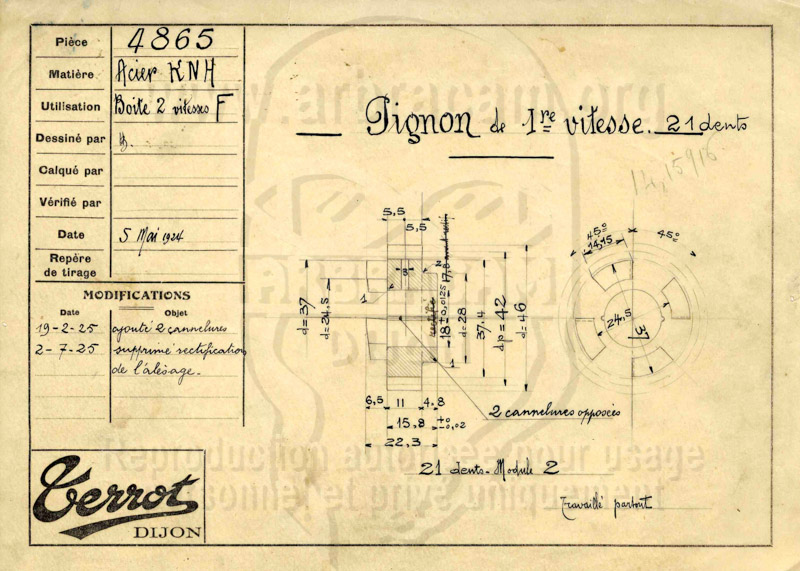 Pièce 4865
Matière Acier KNH
Utilisation Boite 2 vitesses F
Dessiné par
Calqué par
Vérifié par
Date 5 Mai 1924
Repère
de tirage
MODIFICATIONS
Date Objet
19-2-25 ajouté 2 cannelures
2-7-25 supprimé rectification
de l'alésage.
Terrot
DIJON
Pignon de 1re vitesse. 21 dents
14,15916
5,5
5,5
d=37
d=24,5
8
2
1
1
17,8
18 ±0,0125
d=28
37,4
dp=42
d=46
6,5 11 4,8
15,8 ±0,02
22,3
2 cannelures opposées
21 dents - Module 2
Travaillé partout
45° 45°
14,15
24,5
37
www.arbracam.org
Reproduction autorisée pour usage
personnel et privé uniquement